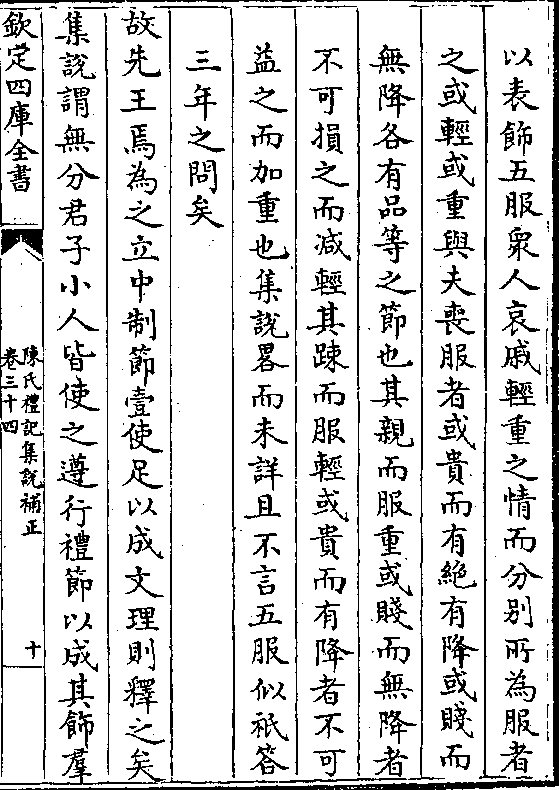 以表飾五服衆人哀戚輕重之情而分别所為服者
之或輕或重與夫喪服者或貴而有絶有降或賤而
無降各有品等之節也其親而服重或賤而無降者
不可損之而减輕其踈而服輕或貴而有降者不可
益之而加重也集說畧而未詳且不言五服似祇答
三年之問矣
故先王焉為之立中制節壹使足以成文理則釋之矣
集說謂無分君子小人皆使之遵行禮節以成其飾羣
欽定四庫全書
陳氏禮記集說補正
卷三十四
十